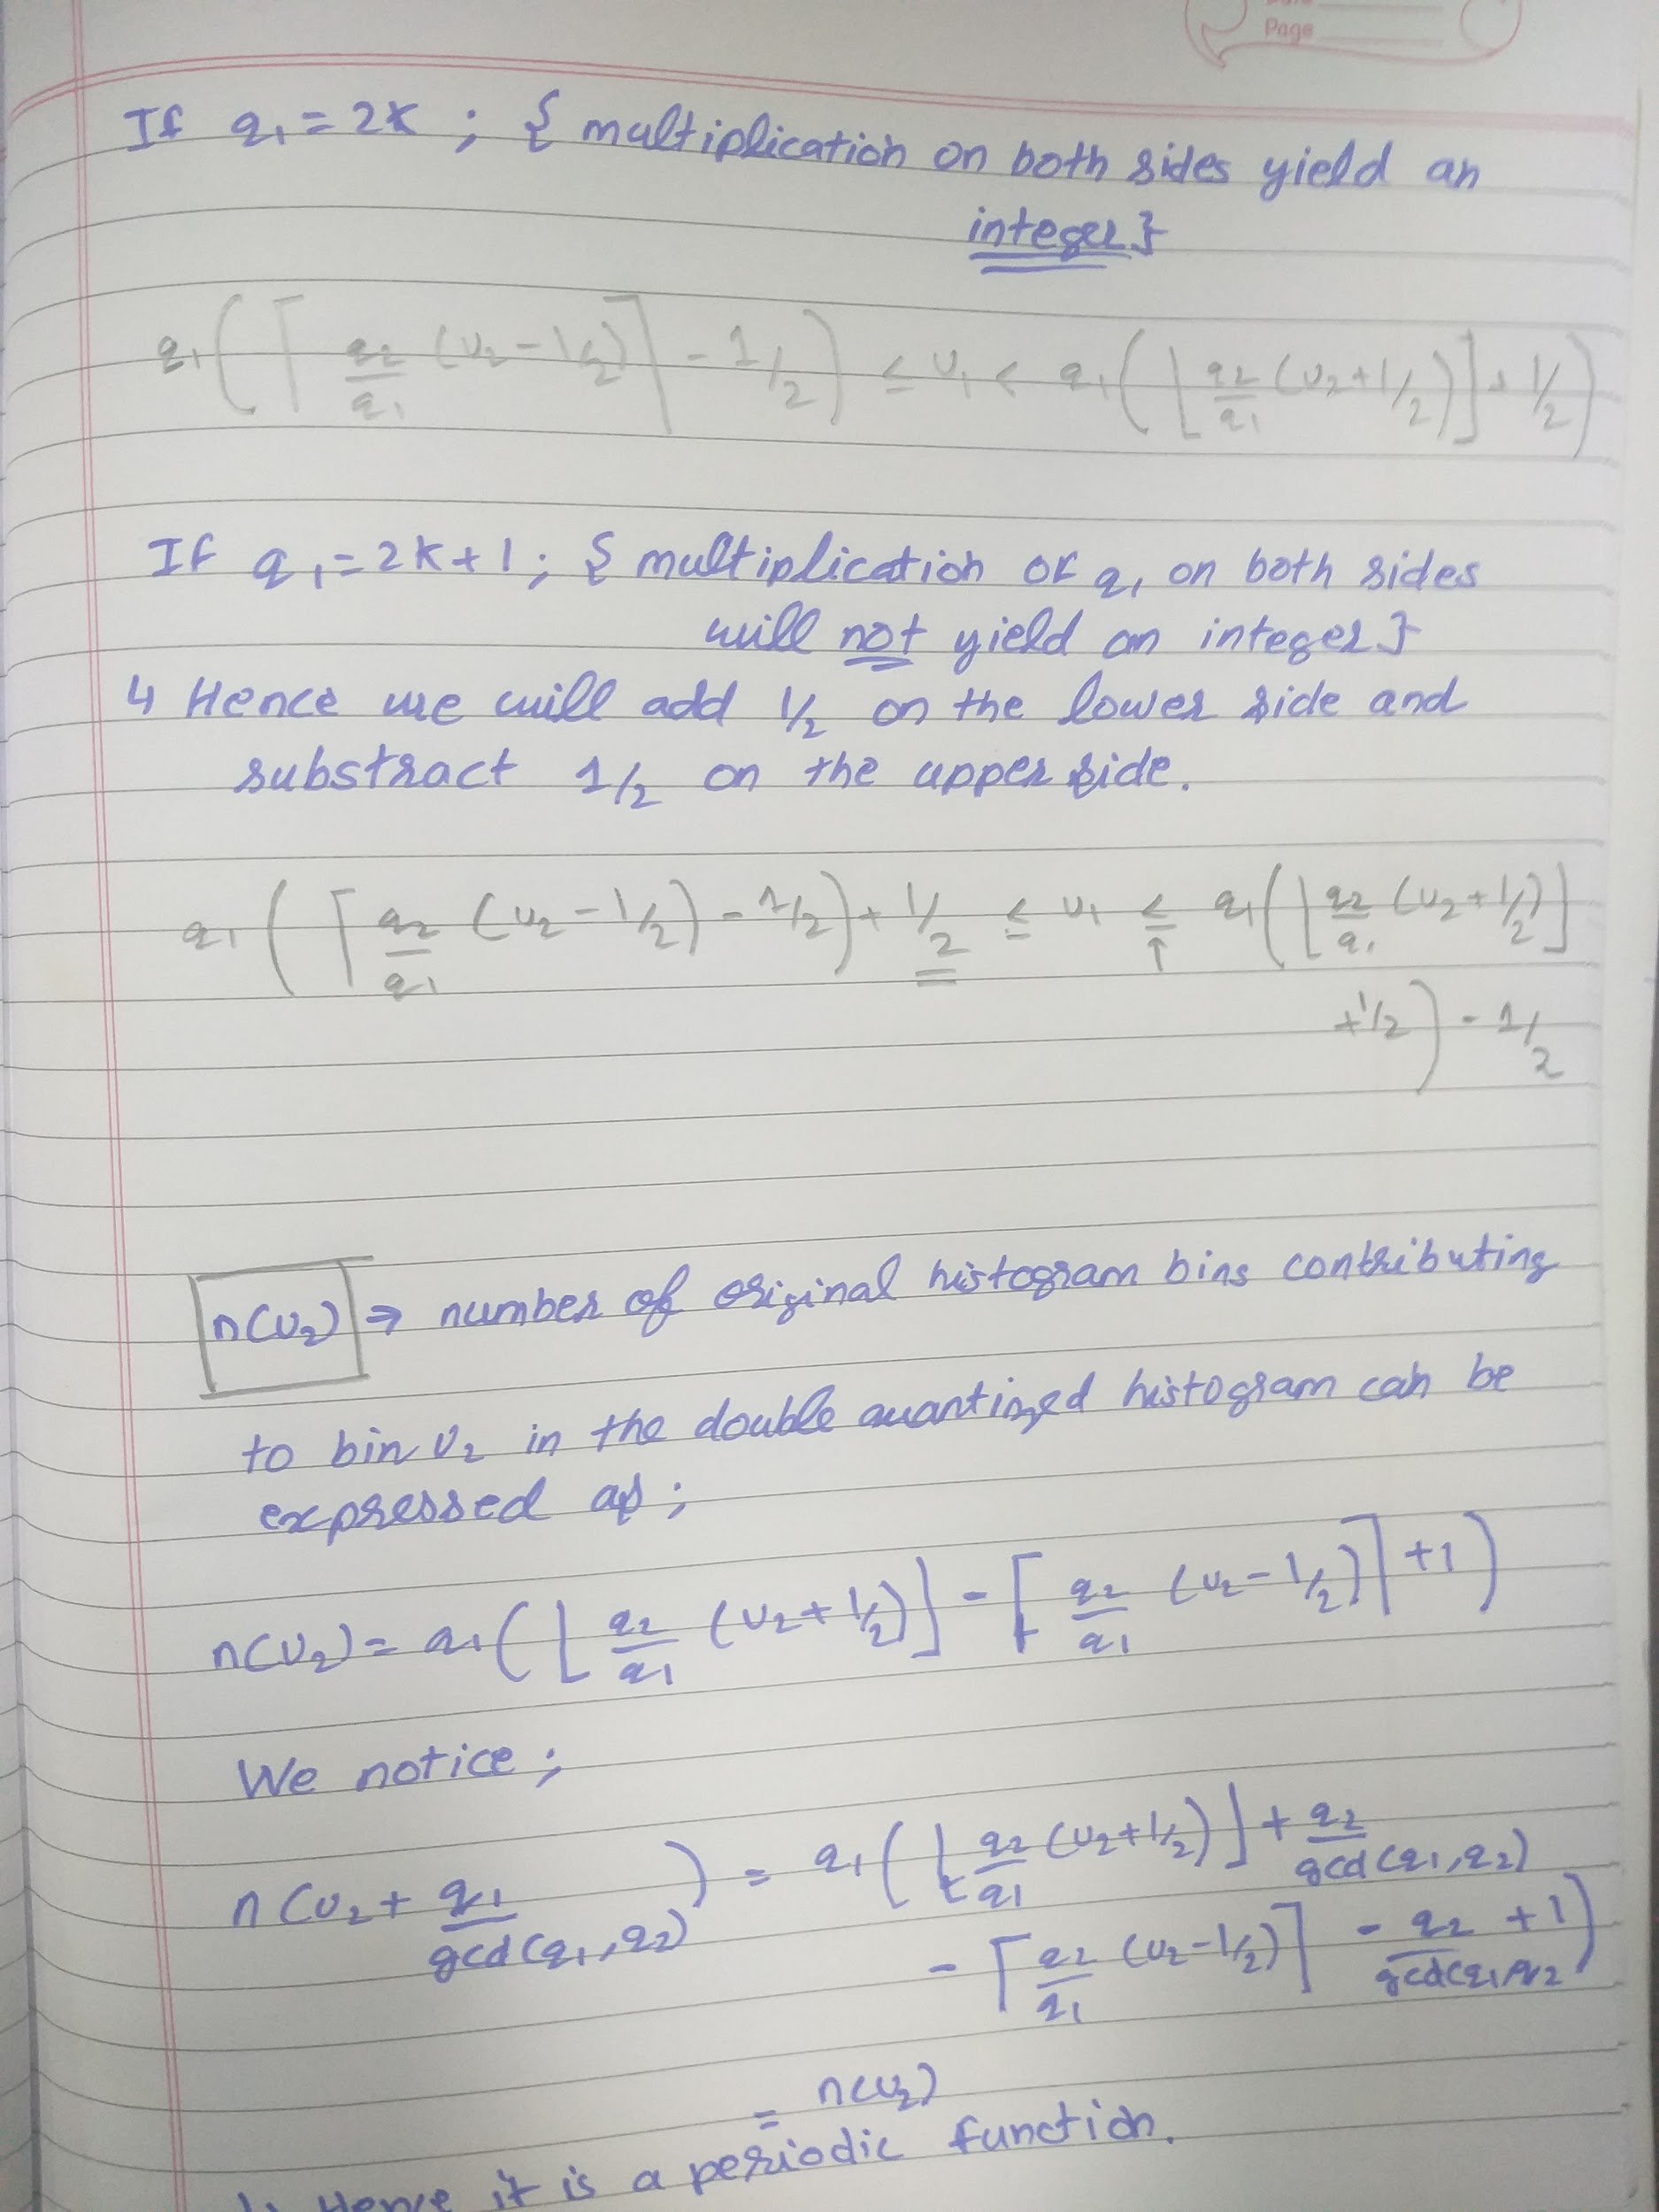 Page
If q₁ = 2k ; { multiplication on both sides yield an
integer }
q₁ ( ⌈ q₂/q₁ (u₂ - 1/2) ⌉ - 1/2 ) ≤ u₁ < q₁ ( ⌊ q₂/q₁ (u₂ + 1/2) ⌋ + 1/2 )
If q₁ = 2k + 1 ; { multiplication of q₁ on both sides
will not yield an integer }
↳ Hence we will add 1/2 on the lower side and
substract 1/2 on the upper side.
q₁ ( ⌈ q₂/q₁ (u₂ - 1/2) - 1/2 ) + 1/2 ≤ u₁ ≤ q₁ ( ⌊ q₂/q₁ (u₂ + 1/2) ⌋
↑
+ 1/2 ) - 1/2
n(u₂) → number of original histogram bins contributing
to bin u₂ in the double quantized histogram can be
expressed as ;
n(u₂) = q₁ ( ⌊ q₂/q₁ (u₂ + 1/2) ⌋ - ⌈ q₂/q₁ (u₂ - 1/2) ⌉ + 1 )
We notice ;
n (u₂ + q₁/gcd(q₁, q₂) ) = q₁ ( ⌊ q₂/q₁ (u₂ + 1/2) ⌋ + q₂/gcd(q₁, q₂)
- ⌈ q₂/q₁ (u₂ - 1/2) ⌉ - q₂/gcd(q₁, q₂ + 1 )
= n(u₂)
Hence it is a periodic function.